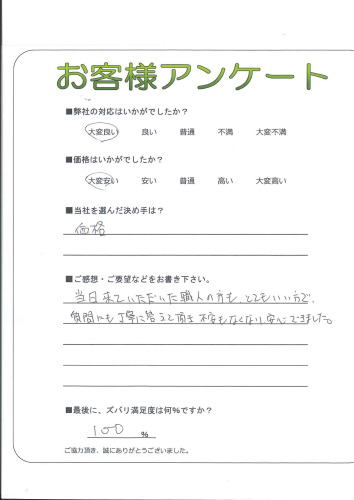 お客様アンケート
■弊社の対応はいかがでしたか？
大変良い 良い 普通 不満 大変不満
■価格はいかがでしたか？
大変安い 安い 普通 高い 大変高い
■当社を選んだ決め手は？
価格
■ご感想・ご要望などをお書き下さい。
当日来ていただいた職人の方も、とてもいい方で、
質問にも丁寧に答えて頂き不安もなくなり、安心できました。
■最後に、ズバリ満足度は何%ですか？
100 %
ご協力頂き、誠にありがとうございました。